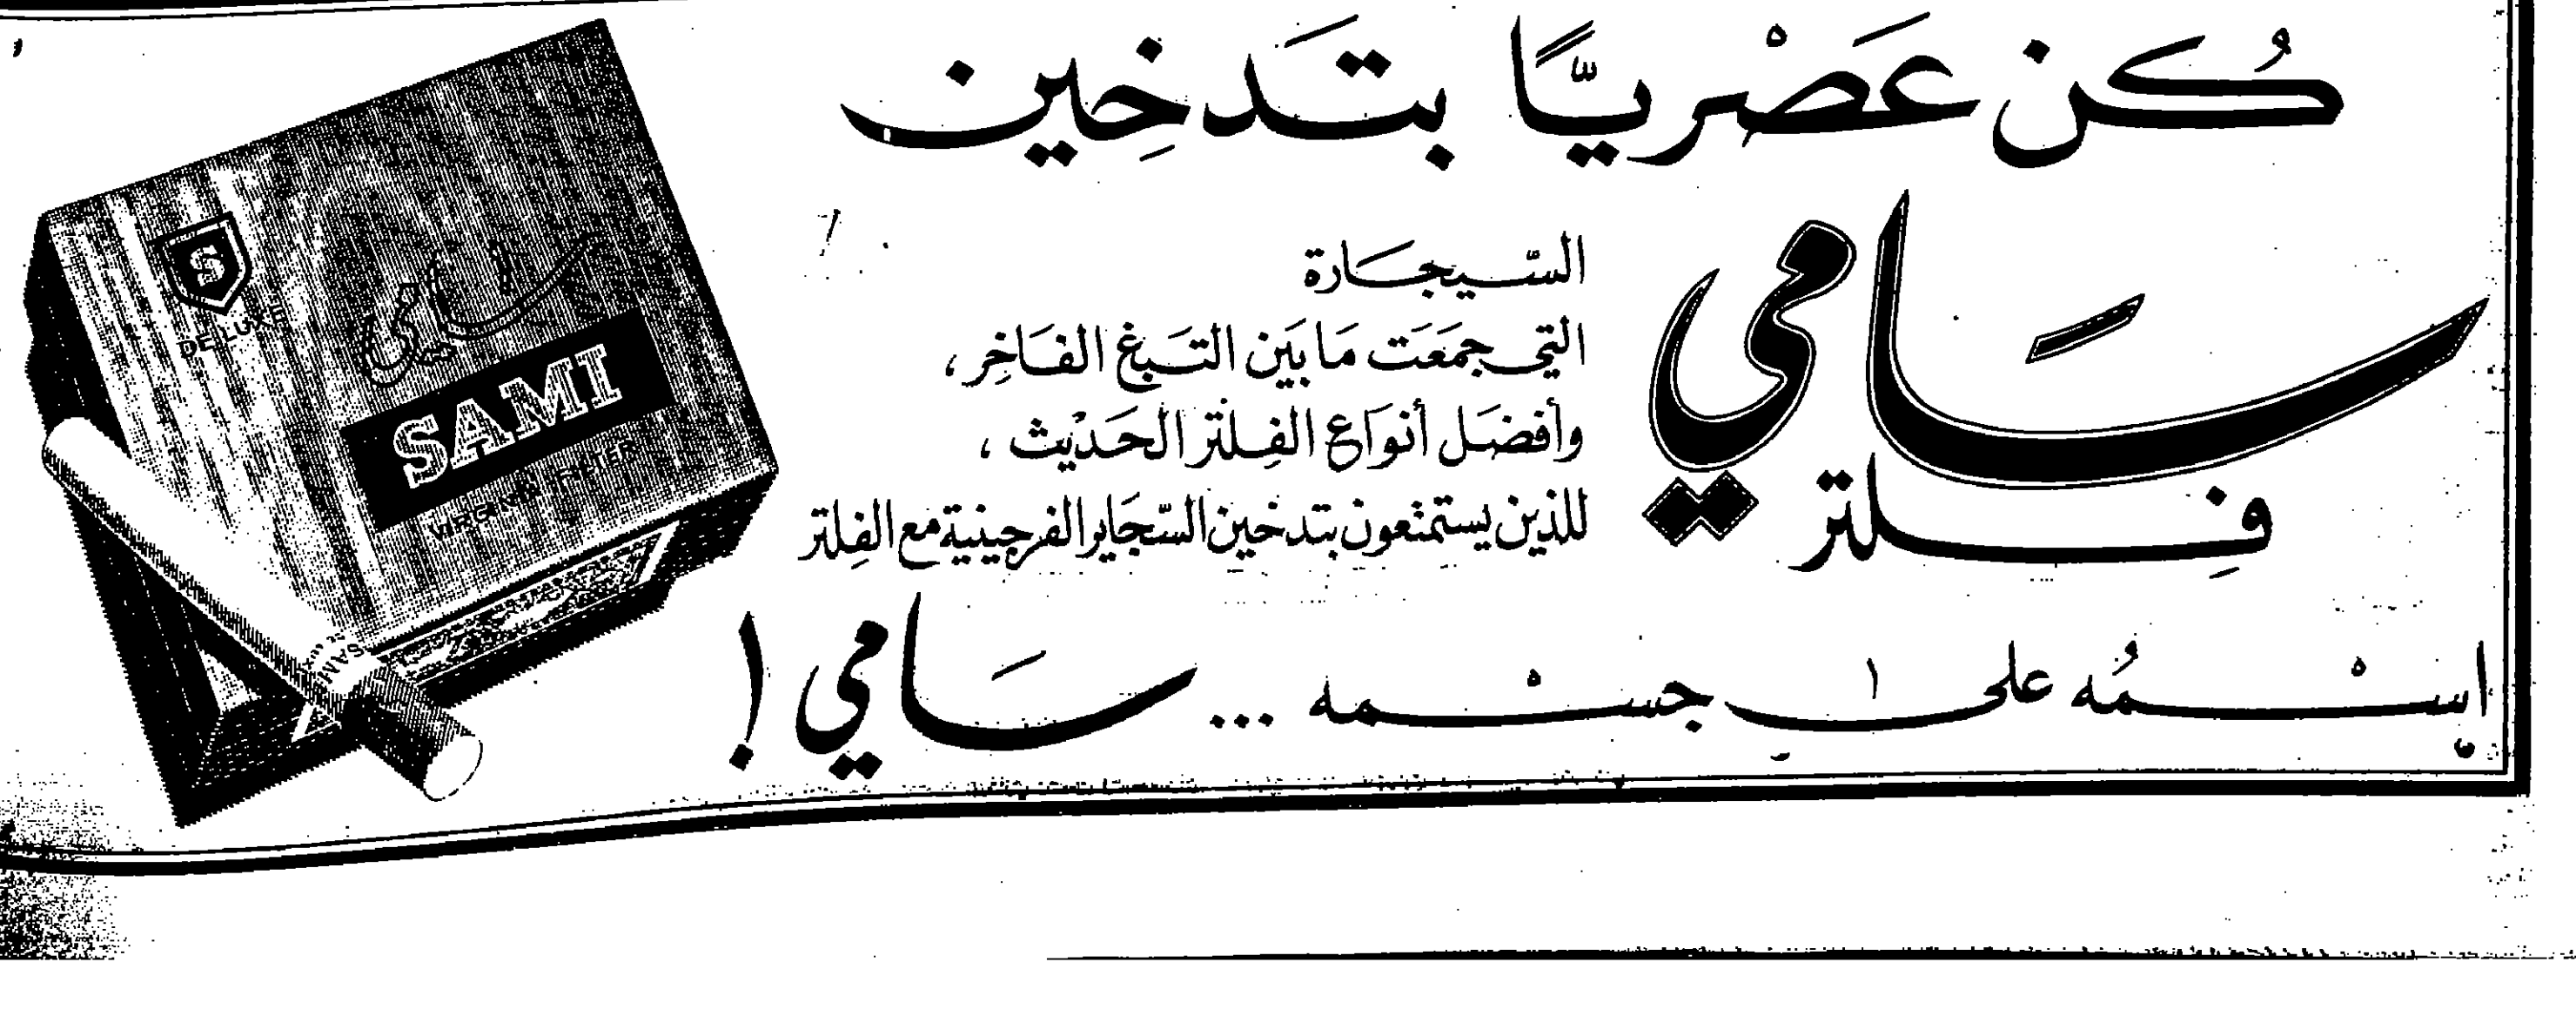 كُن عَصْريًّا بتَدخِين
سَامي
فِلتر
السّيجَارة
التي جمَعَت مَا بَين التَبغ الفَاخِر،
وأفضَل أنوَاع الفِلتر الحَديْث،
للذين يستمتعون بتدخين السّجَاير الفرجينية مع الفِلتر
اسْمُه على جسْمه ... سَامي !
S
DE LUXE
سامي
SAMI
VIRGINIA FILTER
SAMI